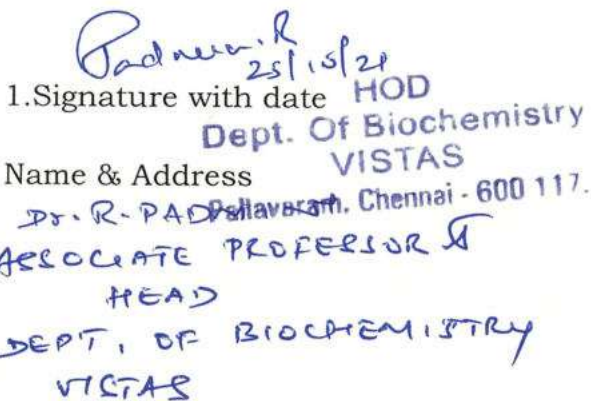 Padma.R
25/10/21
1.Signature with date
HOD
Dept. Of Biochemistry
VISTAS
Pallavaram, Chennai - 600 117.
Name & Address
Dr. R. PADMA
ASSOCIATE PROFESSOR &
HEAD
DEPT. OF BIOCHEMISTRY
VISTAS